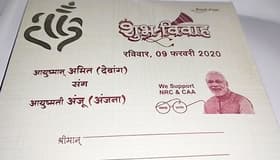 शुभ विवाह
रविवार, 09 फरवरी 2020
आयुष्मान् अमित (देवांग)
संग
We Support
NRC & CAA
आयुष्मती अंजू (अंजना)
श्रीमान्